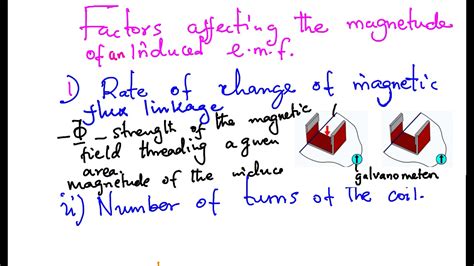 Factors affecting the magnetude
of an Induced e.m.f.
i) Rate of change of magnetic
flux linkage
- Φ - strength of the magnetic
field threading a given
area.
magnetude of the induce
galvanometer
ii) Number of turns of the coil.